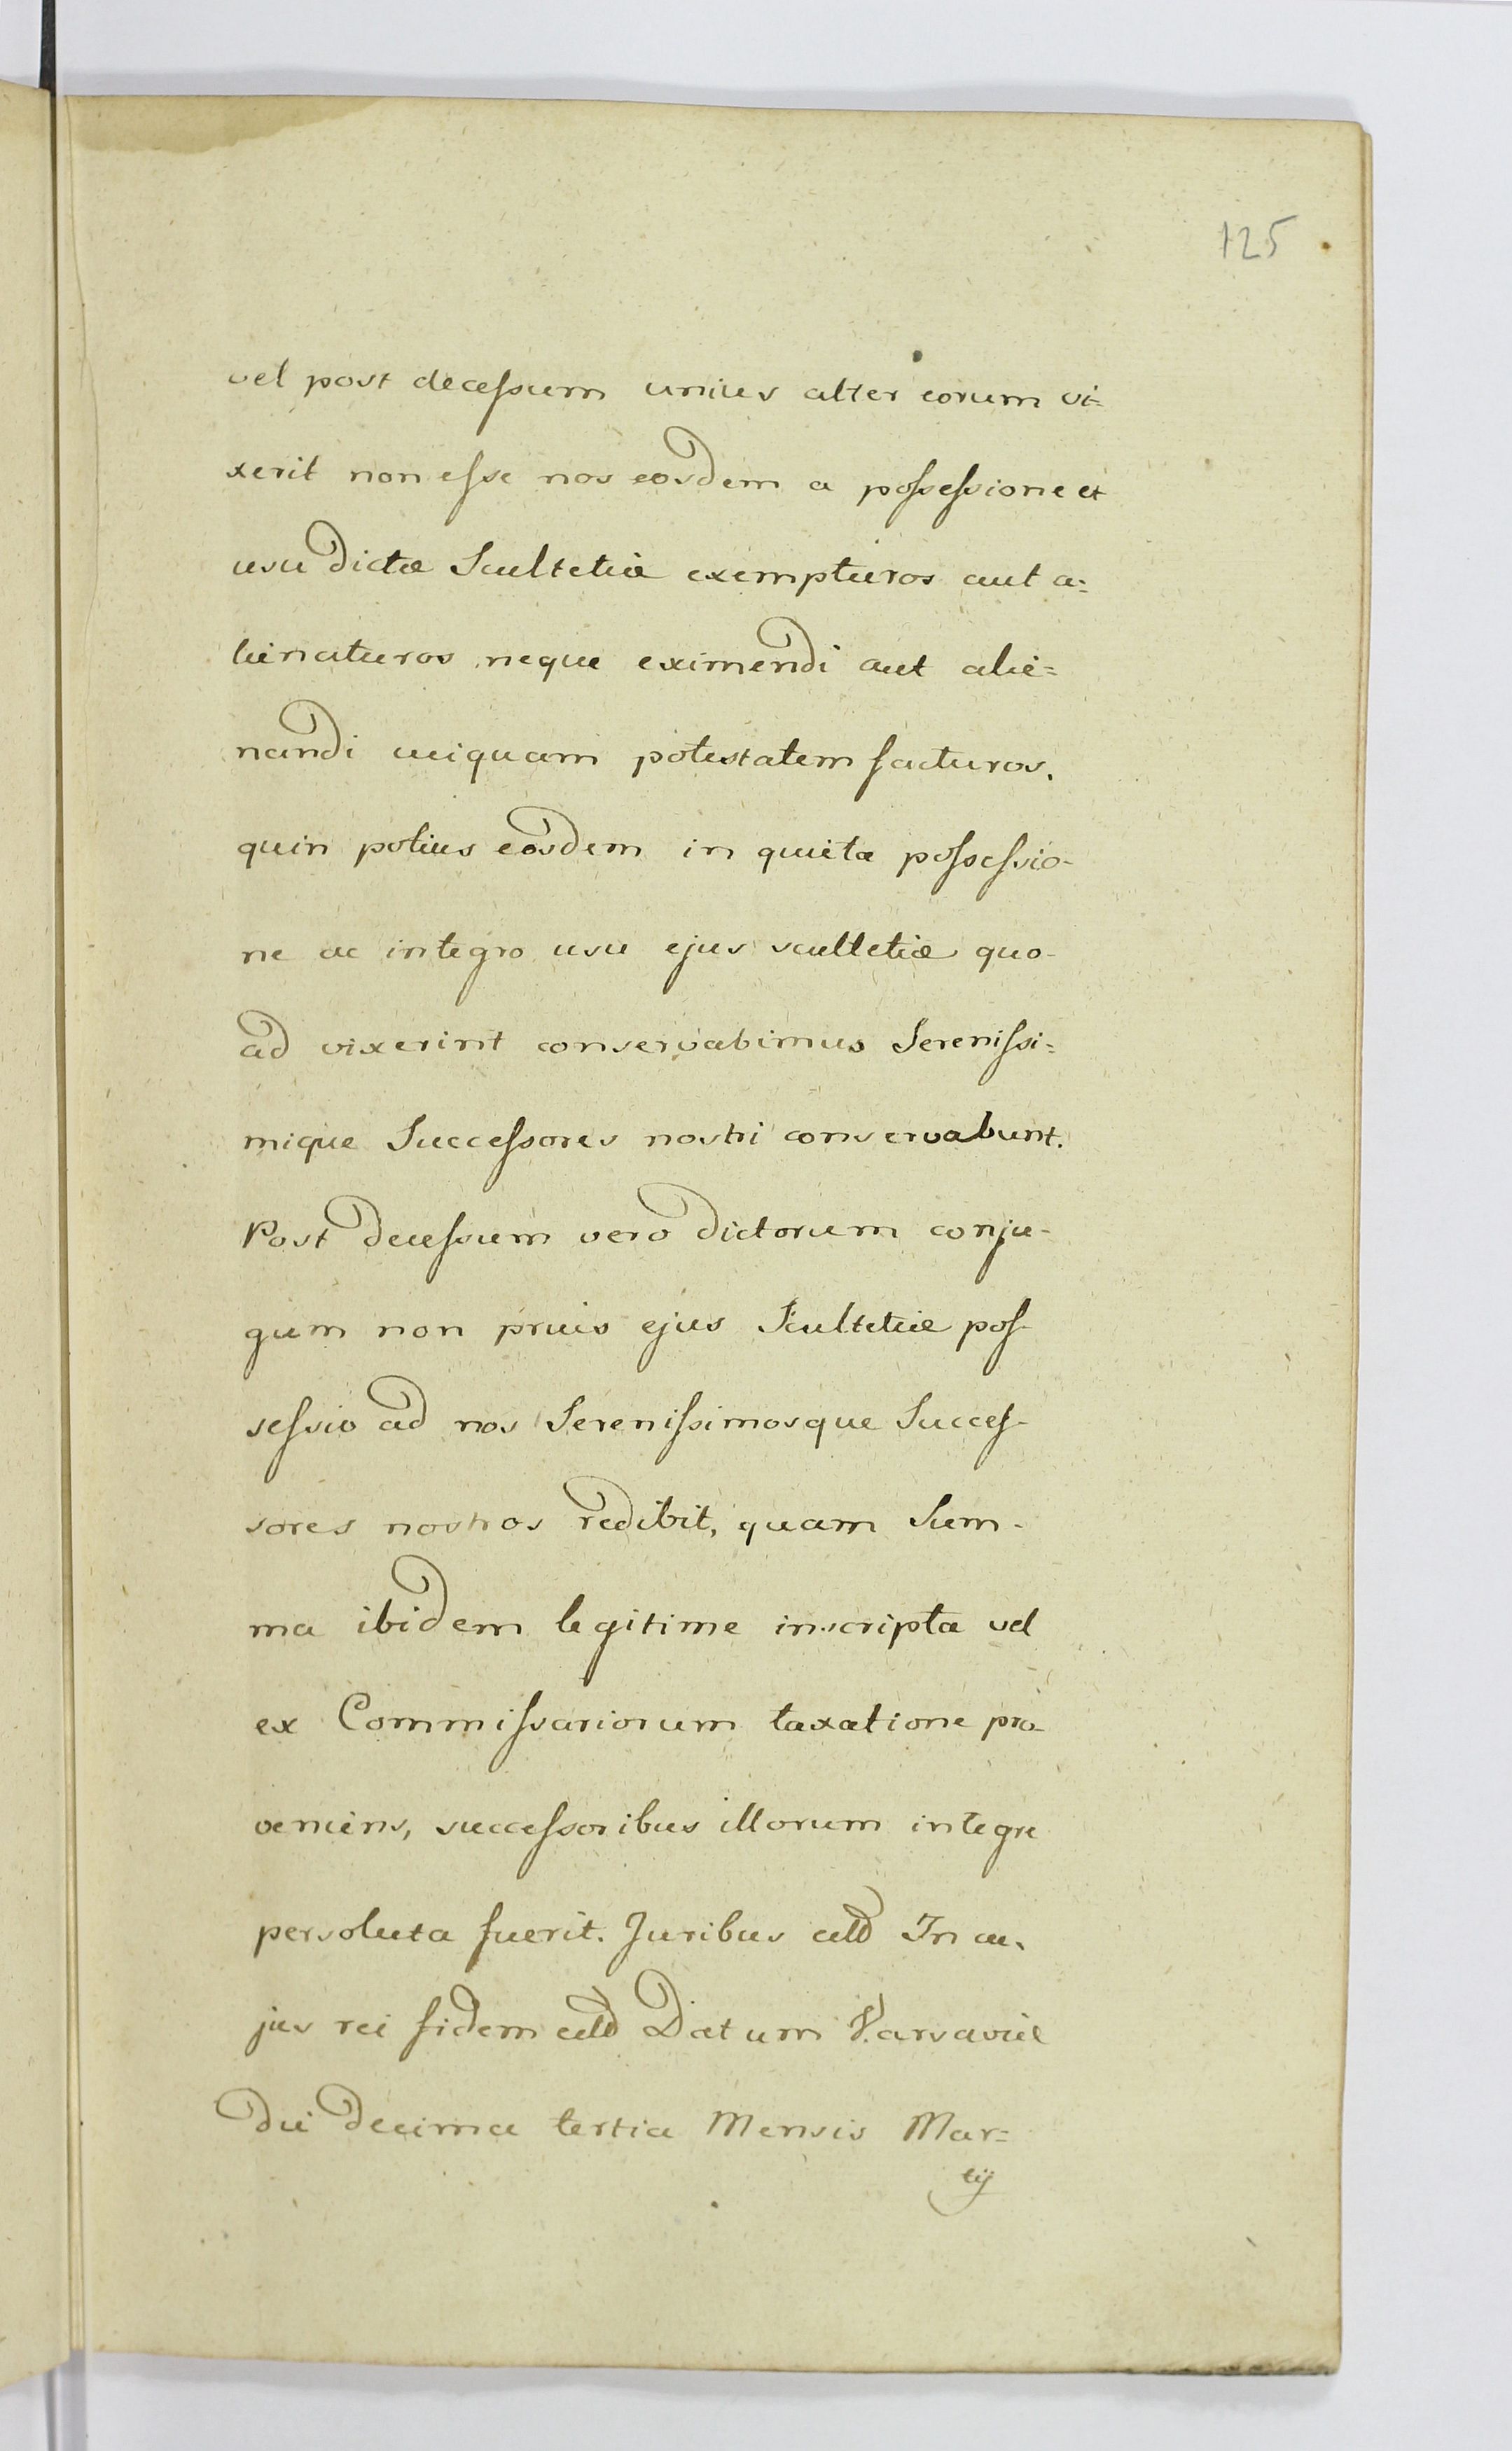 125
vel post decessum unius alter eorum vi=
xerit non esse nos eosdem a possessione et
usu dictæ Scultetiæ exempturos aut a=
lienaturos neque eximendi aut alie=
nandi cuiquam potestatem facturos.
quin potius eosdem in quieta possessio-
ne ac integro usu ejus scultetiæ quo-
ad vixerint conservabimus Serenissi=
mique Successores nostri conservabunt.
Post decessum vero dictorum conju-
gum non prius ejus Scultetiæ pos-
sessio ad nos Serenissimosque Succes-
sores nostros redibit, quam Sum-
ma ibidem legitime inscripta vel
ex Commissariorum taxatione pro-
veniens, successoribus illorum integre
persoluta fuerit. Juribus In cu-
jus rei fidem Datum Varsaviæ
die decima tertia Mensis Mar=
tij